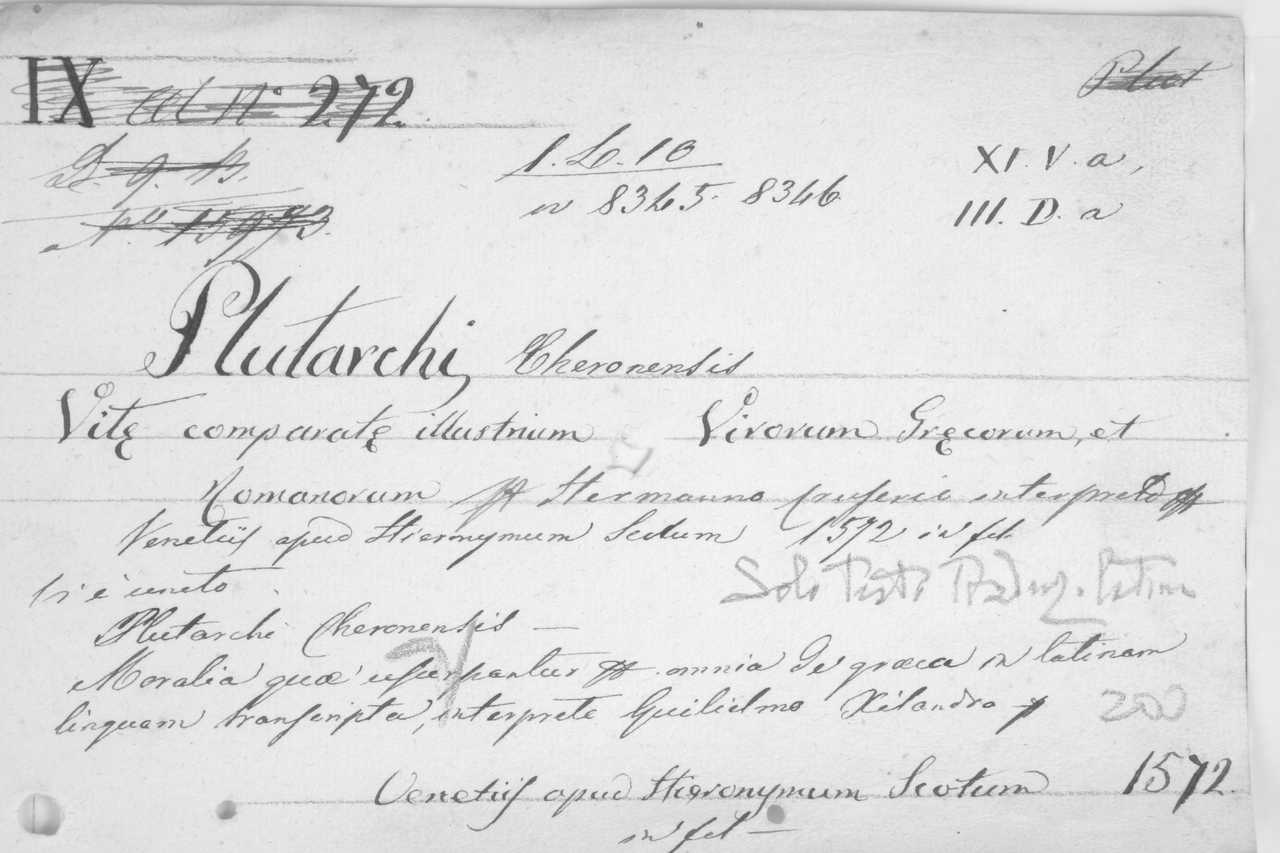 IX al N.o 272.
Plut
D. 9. B.
1. L. 10
XI. V. a,
N.o 15973.
n 8345. 8346
III. D. a
Plutarchi, Cheronensis
Vitę comparatę illustrium Virorum Gręcorum, et
Romanorum Hermanno Cruserio interprete
Venetiis apud Hieronymum Scotum 1572 in fol.
Vi è unito
Solo testo Traduz. latina
Plutarchi Cheronensis —
Moralia quæ usurpantur omnia de græca in latinam
linguam transcripta, interprete Guilielmo Xilandro
200
Venetiis apud Hieronymum Scotum 1572.
in fol —